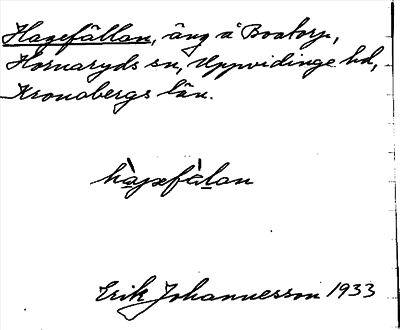 Hagefällan, äng å Boatorp,
Hornaryds sn, Uppvidinge hd,
Kronobergs län.
Erik Johannesson 1933